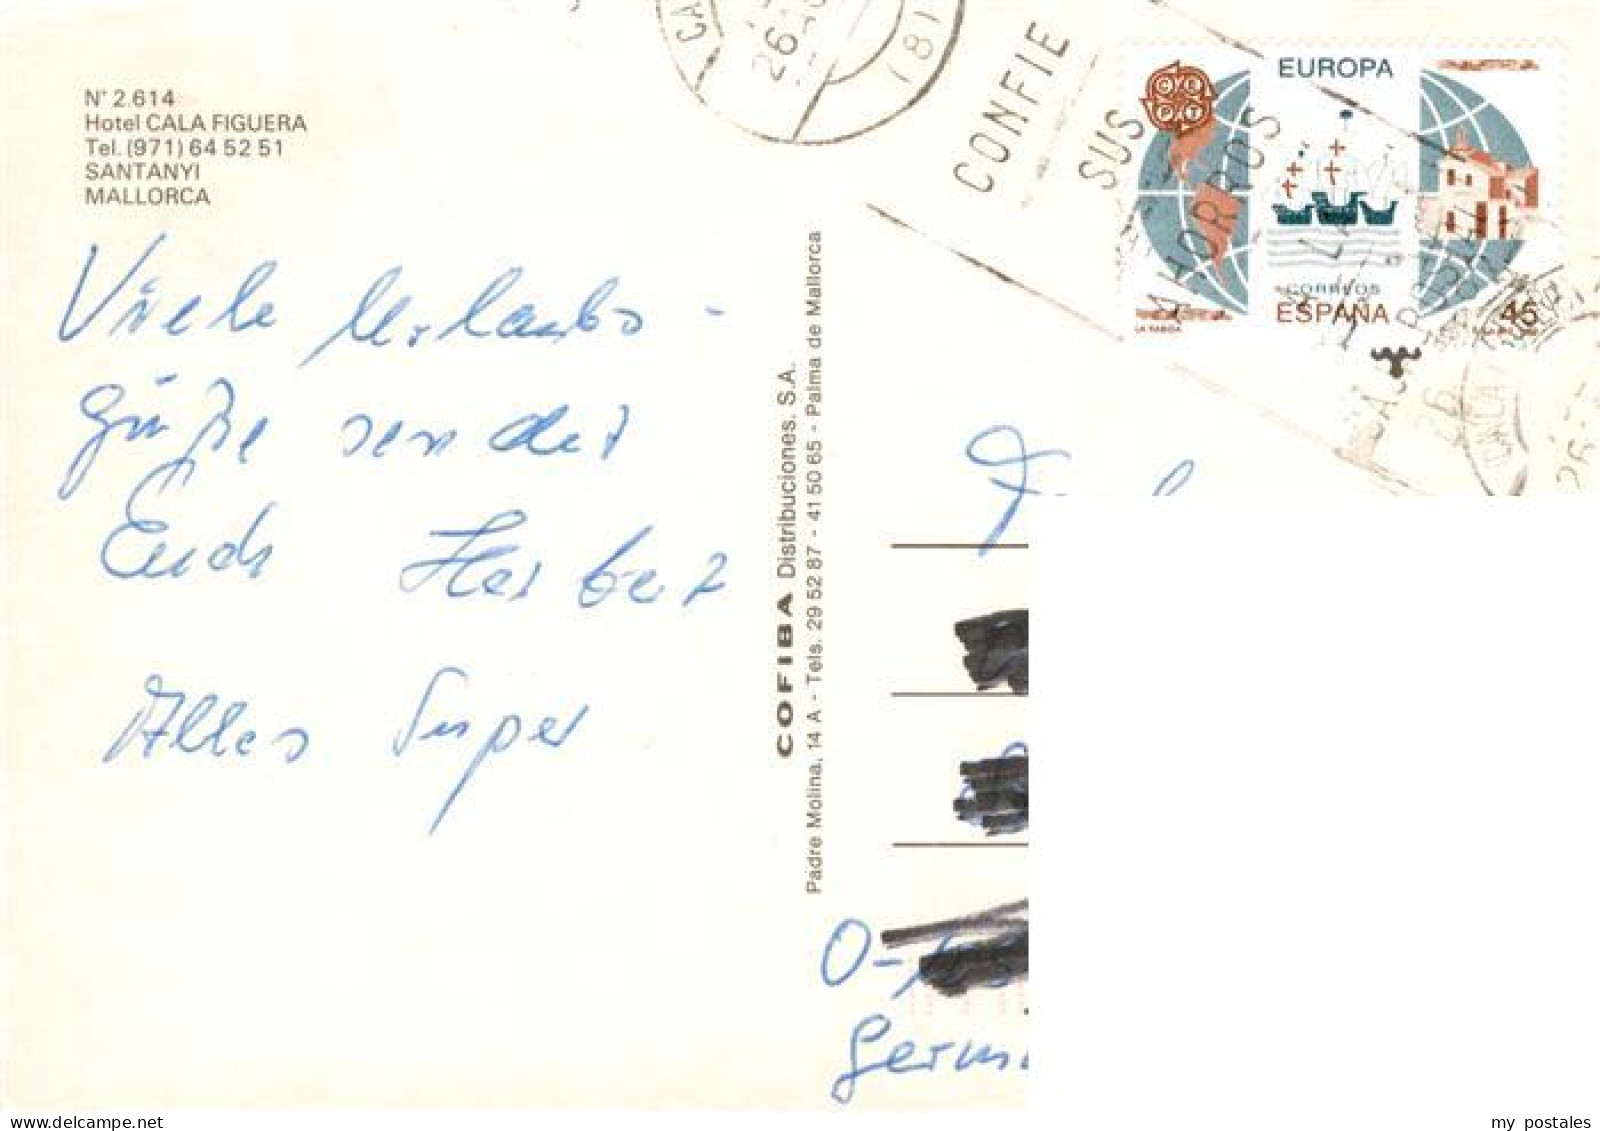 N° 2.614
Hotel CALA FIGUERA
Tel. (971) 64 52 51
SANTANYI
MALLORCA
Viele Urlaubs-
grüße sendet
Euch Herbert
Alles Super
COFIBA Distribuciones. S.A.
Padre Molina, 14 A - Tels. 29 52 87 - 41 50 65 - Palma de Mallorca
CONFIE
SUS
AHORROS
26
(81)
CEPT
EUROPA
CORREOS
ESPAÑA
45
LA RABIDA
O-
Germ
my postales